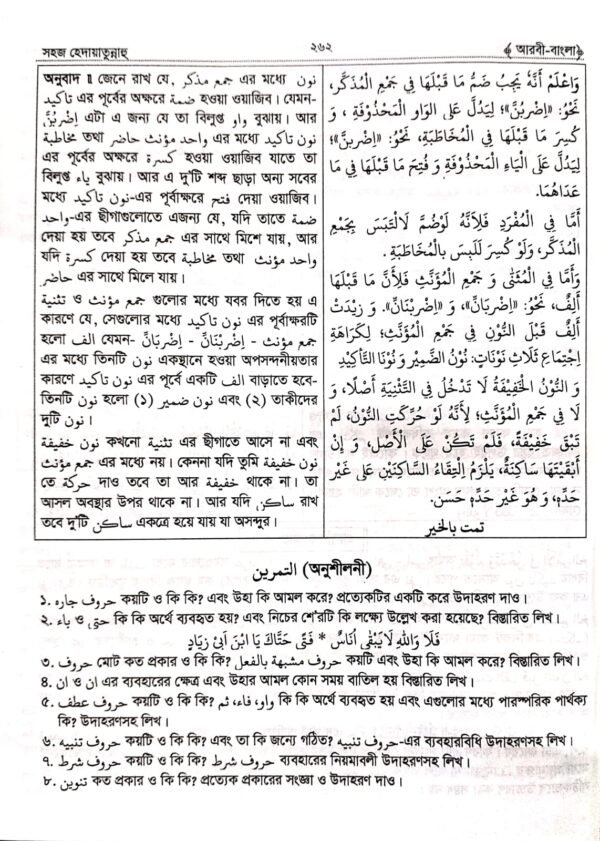 সহজ হেদায়াতুন্নাহু
২৬২
আরবী-বাংলা
অনুবাদ ॥ জেনে রাখ যে, جمع مذكر এর মধ্যে نون
تاكيد এর পূর্বের অক্ষরে ضمة হওয়া ওয়াজিব। যেমন-
اِضْرِبُنَّ এটা এ জন্য যে তা বিলুপ্ত واو বুঝায়। আর
واحد مؤنث حاضر এর মধ্যে نون تاكيد তথা مخاطبة
এর পূর্বের অক্ষরে كسرة হওয়া ওয়াজিব যাতে তা
বিলুপ্ত ياء বুঝায়। আর এ দু'টি শব্দ ছাড়া অন্য সবের
মধ্যে نون تاكيد-এর পূর্বাক্ষরে فتح দেয়া ওয়াজিব।
واحد-এর ছীগাগুলোতে এজন্য যে, যদি তাতে ضمة
দেয়া হয় তবে جمع مذكر এর সাথে মিশে যায়, আর
যদি كسرة দেয়া হয় তবে مخاطبة তথা واحد مؤنث
حاضر এর সাথে মিলে যায়।
تثنية ও جمع مؤنث গুলোর মধ্যে যবর দিতে হয় এ
কারণে যে, সেগুলোর মধ্যে نون تاكيد এর পূর্বাক্ষরটি
হলো الف যেমন- اِضْرِبَانِّ - اِضْرِبْنَانِّ - جمع مؤنث
এর মধ্যে তিনটি نون একস্থানে হওয়া অপসন্দনীয়তার
কারণে نون تاكيد এর পূর্বে একটি الف বাড়াতে হবে-
তিনটি نون হলো (১) نون ضمير এবং (২) তাকীদের
দুটি نون।
نون خفيفة কখনো تثنية এর ছীগাতে আসে না এবং
جمع مؤنث এর মধ্যে নয়। কেননা যদি তুমি نون خفيفة
তে حركة দাও তবে তা আর خفيفة থাকে না। তা
আসল অবস্থার উপর থাকে না। আর যদি ساكن রাখ
তবে দু'টি ساكن একত্রে হয়ে যায় যা অসন্দুর।
وَاعْلَمْ أَنَّهُ يَجِبُ ضَمُّ مَا قَبْلَهَا فِي جَمْعِ الْمُذَكَّرِ،
نَحْوُ: «اِضْرِبُنَّ»؛ لِيَدُلَّ عَلَى الْوَاوِ الْمَحْذُوْفَةِ ، وَ
كَسِرَ مَا قَبْلَهَا فِي الْمُخَاطَبَةِ، نَحْوُ: «اِضْرِبِنَّ»؛
لِيَدُلَّ عَلَى الْيَاءِ الْمَحْذُوْفَةِ وَ فُتِحَ مَا قَبْلَهَا فِي مَا
عَدَاهُمَا.
أَمَّا فِي الْمُفْرَدِ فَلِأَنَّهُ لَوْضُمَّ لَالْتَبَسَ بِجَمْعِ
الْمُذَكَّرِ، وَلَوْ كُسِرَ لَلَبِسَ بِالْمُخَاطَبَةِ.
وَأَمَّا فِي الْمُثَنَّى وَ جَمْعِ الْمُؤَنَّثِ فَلِأَنَّ مَا قَبْلَهَا
أَلِفٌ، نَحْوُ: «اِضْرِبَانِّ»، وَ «اِضْرِبْنَانِّ». وَ زِيْدَتْ
أَلِفٌ قَبْلَ النُّوْنِ فِي جَمْعِ الْمُؤَنَّثِ؛ لِكَرَاهَةِ
اِجْتِمَاعِ ثَلَاثِ نُوْنَاتٍ: نُوْنُ الضَّمِيْرِ وَ نُوْنَا التَّأْكِيْدِ
وَ النُّوْنُ الْخَفِيْفَةُ لَا تَدْخُلُ فِي التَّثْنِيَةِ أَصْلًا، وَ
لَا فِي جَمْعِ الْمُؤَنَّثِ؛ لِأَنَّهُ لَوْ حُرِّكَتِ النُّوْنُ، لَمْ
تَبْقَ خَفِيْفَةً، فَلَمْ تَكُنْ عَلَى الْأَصْلِ، وَ إِنْ
أَبْقَيْتَهَا سَاكِنَةً، يَلْزَمُ اِلْتِقَاءُ السَّاكِنَيْنِ عَلَى غَيْرِ
حَدِّهِ، وَ هُوَ غَيْرُ حَسَنٍ.
تمت بالخير
التمرين (অনুশীলনী)
১. حروف جاره কয়টি ও কি কি? এবং উহা কি আমল করে? প্রত্যেকটির একটি করে উদাহরণ দাও।
২. باء ও حتى কি কি অর্থে ব্যবহৃত হয়? এবং নিচের শে'রটি কি লক্ষ্যে উল্লেখ করা হয়েছে? বিস্তারিত লিখ।
فَلَا وَاللهِ لَا يَبْقٰى أُنَاسٌ * فَتًى حَتَّاكَ يَا ابْنَ اَبِيْ زِيَادٍ
৩. حروف মোট কত প্রকার ও কি কি? حروف مشبهة بالفعل কয়টি এবং উহা কি আমল করে? বিস্তারিত লিখ।
৪. ان ও ان এর ব্যবহারের ক্ষেত্র এবং উহার আমল কোন সময় বাতিল হয় বিস্তারিত লিখ।
৫. حروف عطف কয়টি ও কি কি? واو، فاء، ثم কি কি অর্থে ব্যবহৃত হয় এবং এগুলোর মধ্যে পারস্পরিক পার্থক্য
কি? উদাহরণসহ লিখ।
৬. حروف تنبيه কয়টি ও কি কি? এবং তা কি জন্যে গঠিত? حروف تنبيه-এর ব্যবহারবিধি উদাহরণসহ লিখ।
৭. حروف شرط কয়টি ও কি কি? حروف شرط ব্যবহারের নিয়মাবলী উদাহরণসহ লিখ।
৮. تنوين কত প্রকার ও কি কি? প্রত্যেক প্রকারের সংজ্ঞা ও উদাহরণ দাও।